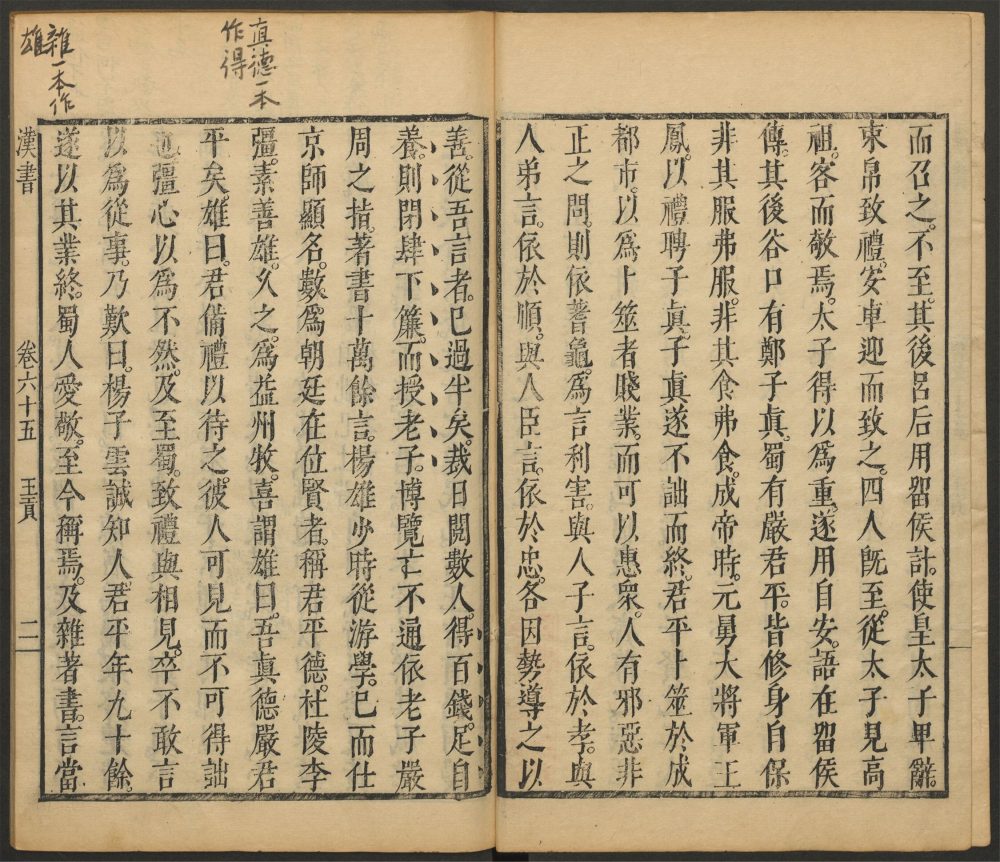 而召之。不至。其後呂后用畱侯計。使皇太子卑辭。
束帛致禮。安車迎而致之。四人旣至。從太子見。高
祖。客而敬焉。太子得以爲重。遂用自安。語在畱侯
傳。其後谷口有鄭子眞。蜀有嚴君平。皆修身自保
非其服弗服。非其食弗食。成帝時。元舅大將軍王
鳳。以禮聘子眞。子眞遂不詘而終。君平卜筮於成
都市。以爲卜筮者賤業。而可以惠衆。人有邪惡非
正之問。則依蓍龜。爲言利害。與人子言。依於孝。與
人弟言。依於順。與人臣言。依於忠。各因勢導之以
善。從吾言者。已過半矣。裁日閱數人。得百錢。足自
養。則閉肆下簾。而授老子。博覽亡不通依老子嚴
周之指。著書十萬餘言。楊雄少時從游學。已而仕
京師顯名。數。爲朝廷在位賢者。稱君平德。杜陵李
彊。素善雄。久之。爲益州牧。喜謂雄曰。吾眞德嚴君
平矣。雄曰。君備禮以待之。彼人可見而不可得詘
也。彊心以爲不然。及至蜀。致禮與相見。卒不敢言
以爲從事。乃歎曰。楊子雲誠知人。君平年九十餘。
遂以其業終。蜀人愛敬。至今稱焉。及雜著書。言當
漢書 卷六十五 王貢 二
眞德一本
作得
雜一本作
雄